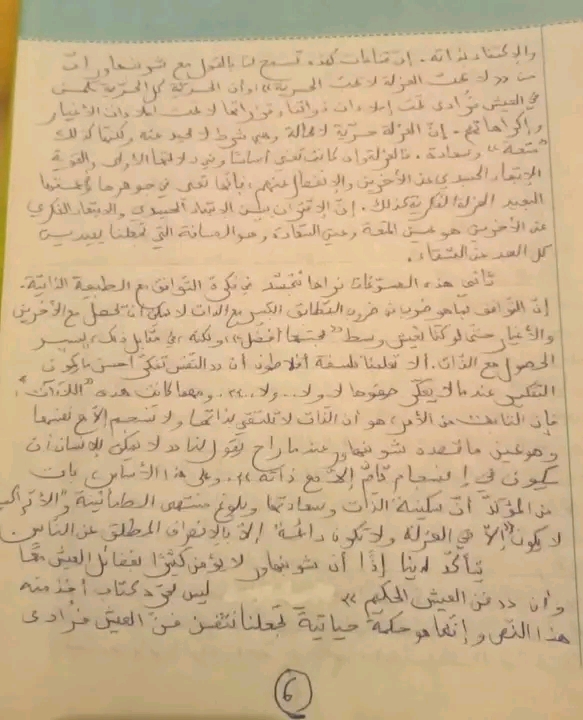 والإكتفاء بذاته. إن قناعات كهذه تسمح لنا بالقول مع شوبنهاور أنّ
من لا يحب العزلة لا يحب الحرية، وأن الحرية كل الحرية تكمن
في العيش فرادى تحت إملاءات ذواتنا، لا تحت إملاءات الأغيار
وإكراهاتهم. إنّ العزلة حرّية لا محالة وهي شرط لا محيد عنه ولكنها كذلك
"متعة" وسعادة. فالعزلة وإن كانت تعني أساسًا وفي دلالتها الأولى والقوية
الإبتعاد الجسدي عن الآخرين والإنفصال عنهم، فإنها تعني في جوهرها
البعيد العزلة الفكرية كذلك. إنّ الإقتران بين الإبتعاد الجسدي والإبتعاد الفكري
عن الآخرين هو عين المتعة وعين السعادة، وهو المسافة التي تجعلنا بعيدين
كل البعد عن الشقاء.
ثاني هذه المسوّغات نراها تتجسّد في فكرة التوافق مع الطبيعة الذاتية.
إنّ التوافق بما هو ضرب من ضروب التطابق الكلي مع الذات لا يمكن أن تحصل مع الآخرين
والأغيار حتى لو كنّا نعيش وسط "مجتمعا أفضل"، ولكنه، في مقابل ذلك، يسير
الحصول مع الذات. ألا تعلمنا فلسفة أفلاطون أن النفس تفكّر أحسن ما يكون
التفكير عندما لا يعكّر صفوها لا ولا... ولا...، ومهما كانت هذه "اللاءات"،
فإن الثابت من الأمر، هو أن الذات لا تلتقي بذاتها ولا تنسجم إلا مع نفسها
وهو عين ما قصده شوبنهاور عندما راح يقول لنا لا يمكن للإنسان أن
يكون في إنسجام تامّ إلا مع ذاته. وعلى هذا الأساس، بات
من المؤكد أنّ سكينة الذات وسعادتها وبلوغ منتهى الطمأنينة
لا يكون إلاّ في العزلة ولا تكون دائمة إلاّ بالإنصراف المطلق عن الناس
يتأكّد لدينا إذًا أن شوبنهاور لا يؤمن كثيرًا بفضائل العيش معًا
وأن فن العيش الحكيم ليس مجرّد كتاب أخذ منه
هذا النّص وإنّما هو حكمة حياتية تجعلنا نتقن فنّ العيش فرادى
6